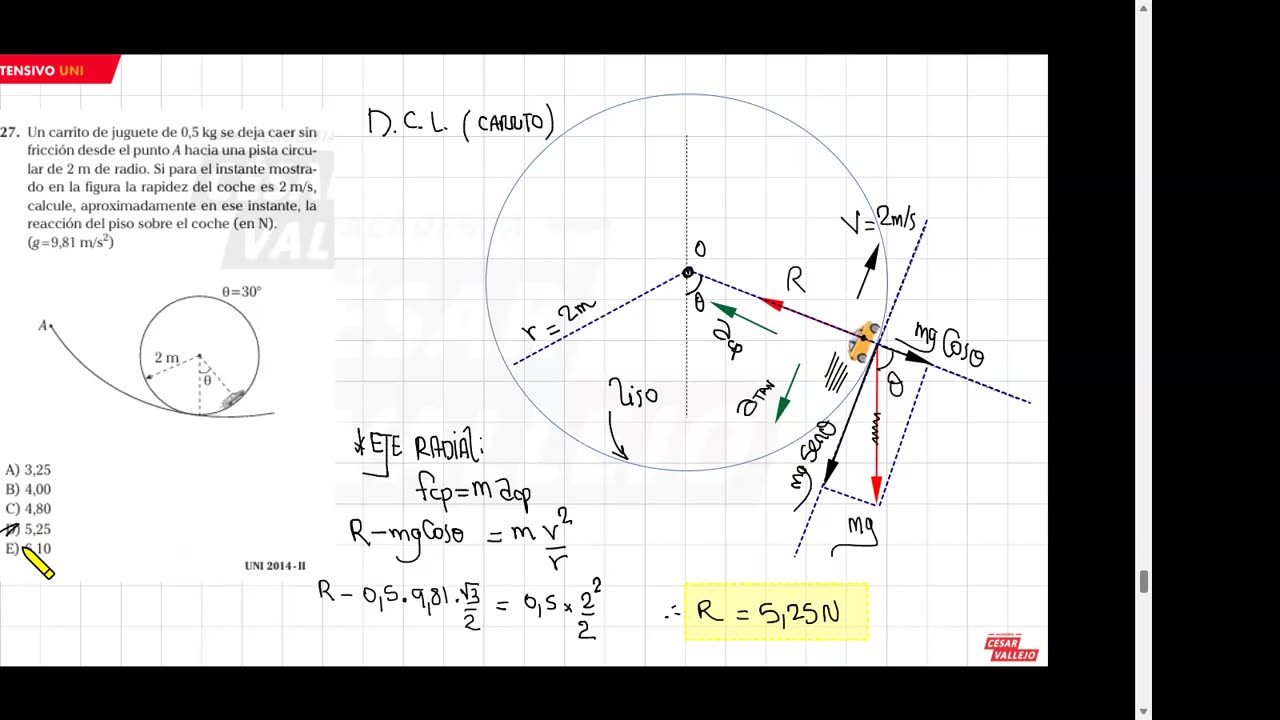 TENSIVO UNI
27. Un carrito de juguete de 0,5 kg se deja caer sin
fricción desde el punto A hacia una pista circu-
lar de 2 m de radio. Si para el instante mostra-
do en la figura la rapidez del coche es 2 m/s,
calcule, aproximadamente en ese instante, la
reacción del piso sobre el coche (en N).
(g=9,81 m/s²)
θ=30°
A
2 m
θ
A) 3,25
B) 4,00
C) 4,80
D) 5,25
E) 6,10
UNI 2014-II
D.C.L. (CARRITO)
V=2m/s
O
R
θ
r=2m
acp
mg Cosθ
θ
aTAN
liso
mg senθ
mg
* EJE RADIAL:
fcp=m acp
R-mgCosθ = m v²/r
R - 0,5.9,81.√3/2 = 0,5×2²/2
∴ R = 5,25N
ACADEMIA
CESAR
VALLEJO